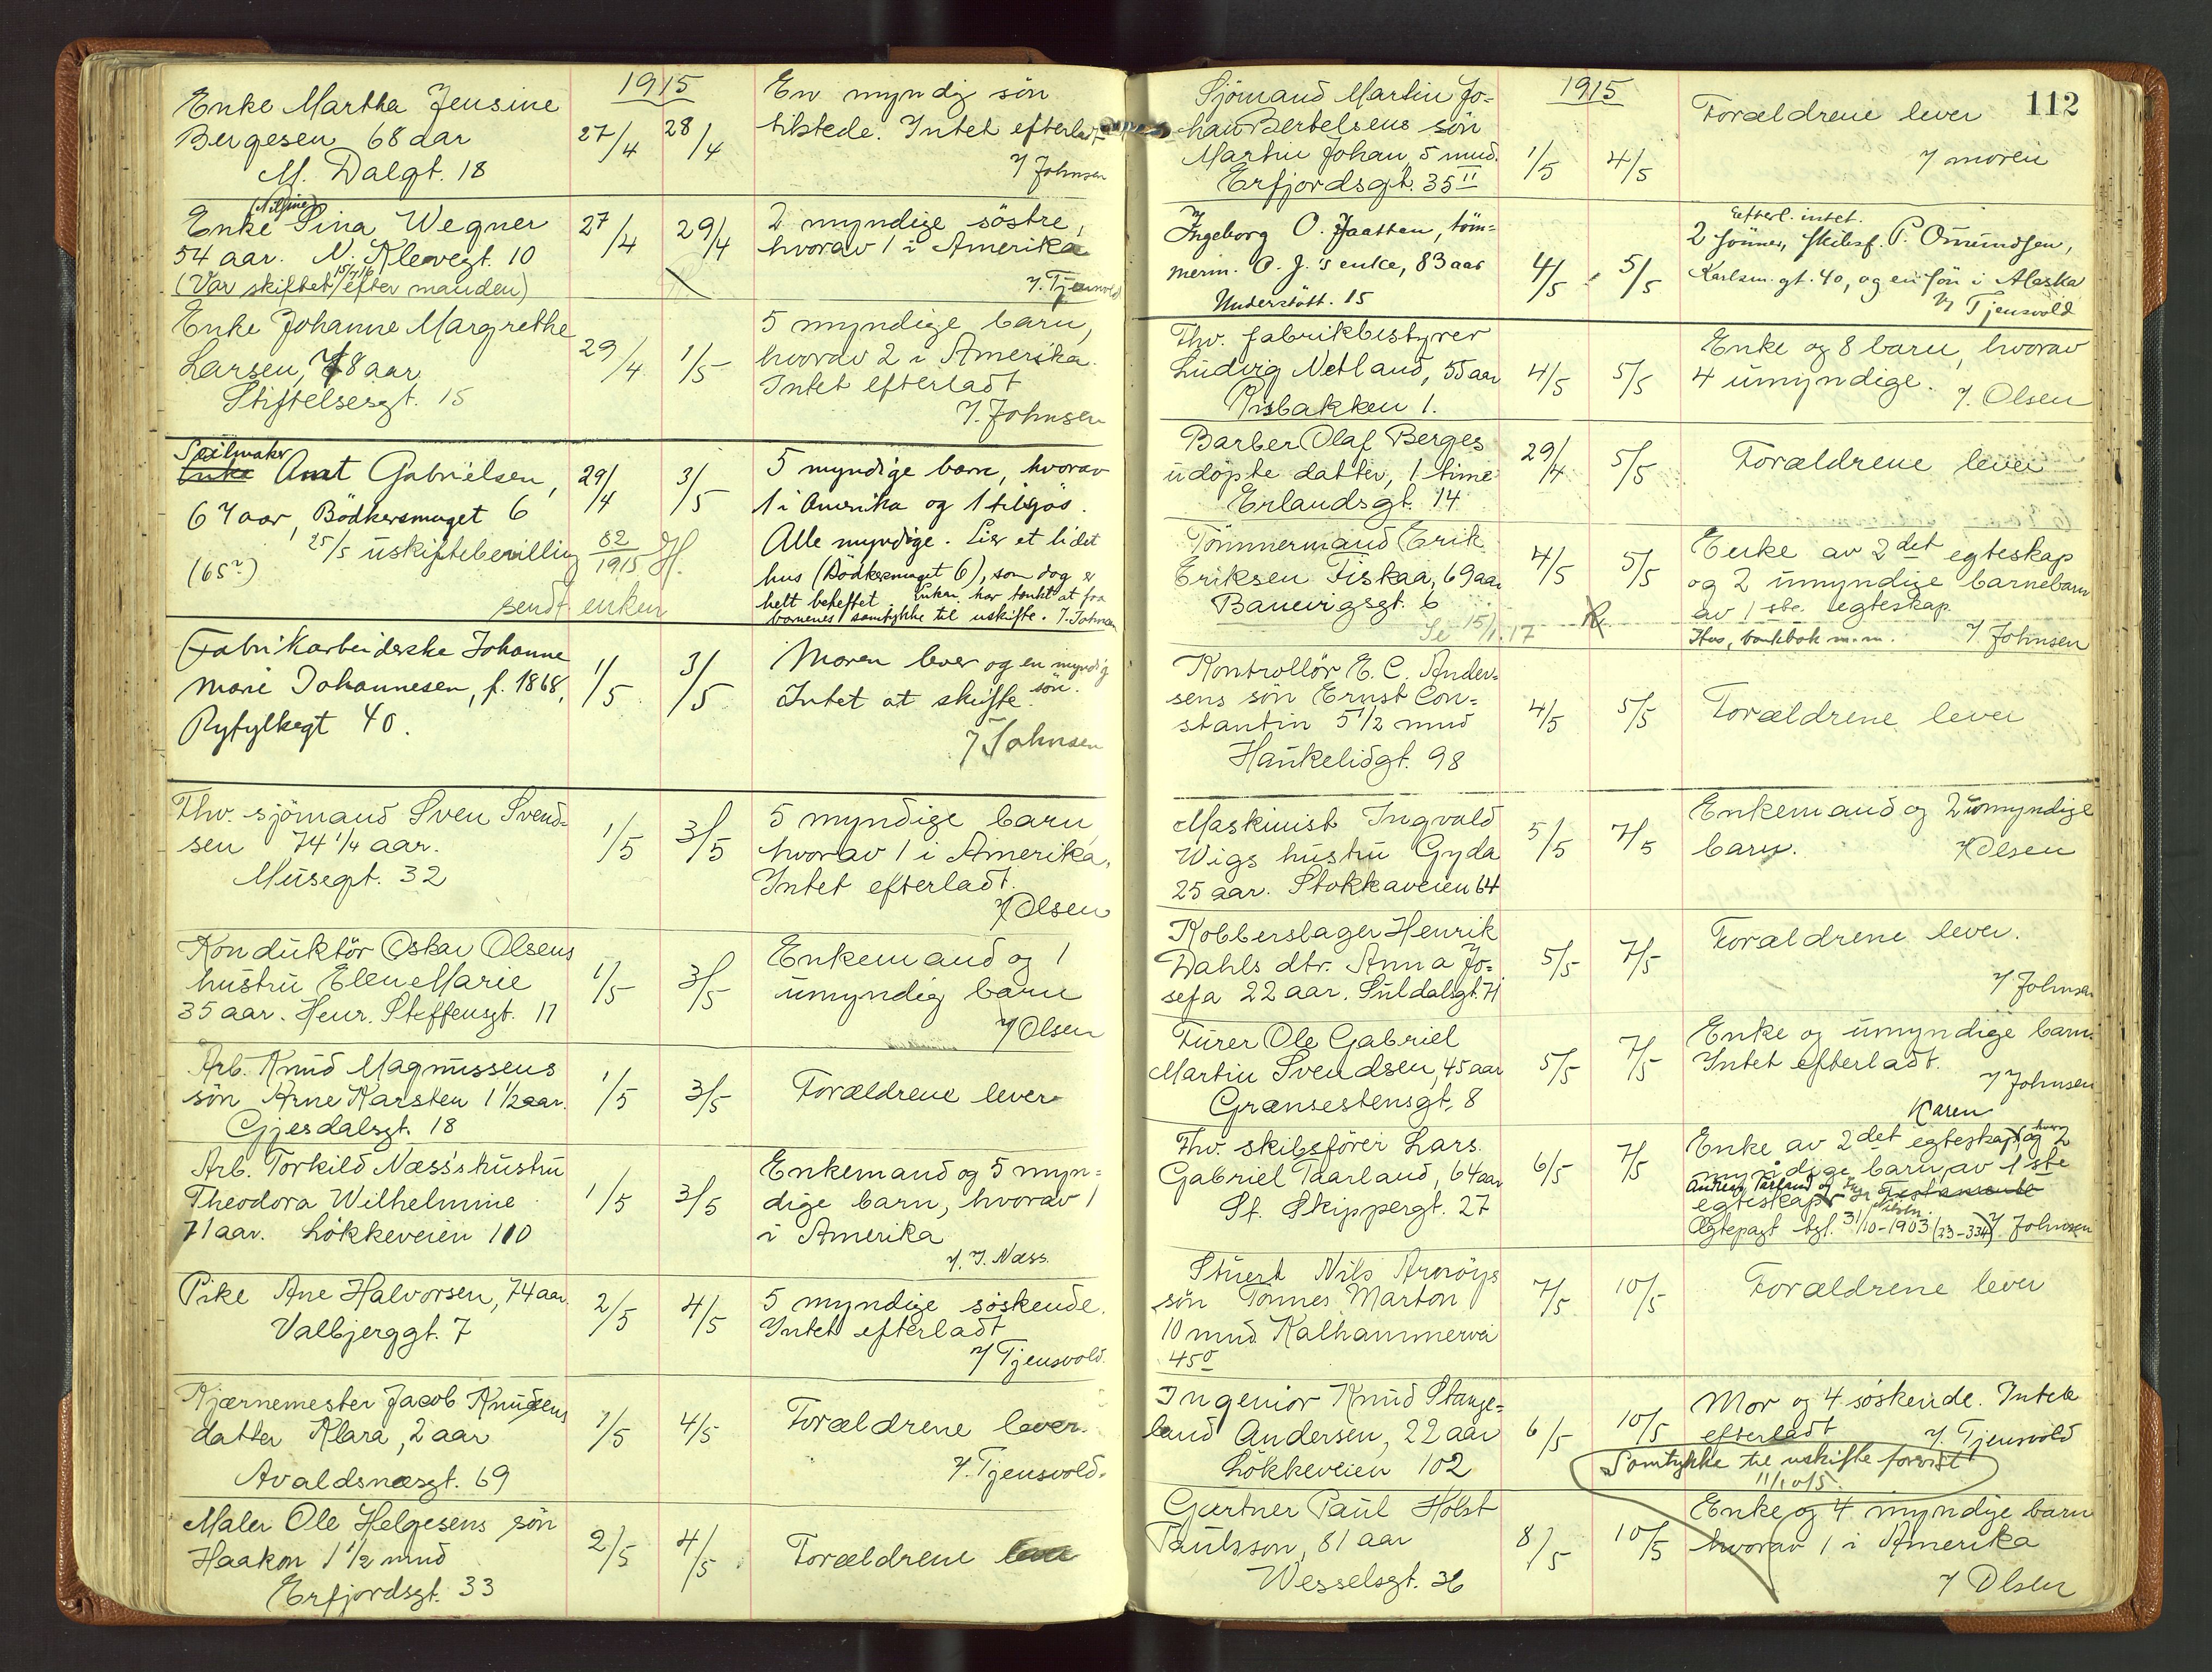 1915
Enke Martha Jensine
Bergesen 68 aar
M. Dalgt. 18
27/4 28/4
En myndig søn
tilstede. Intet efterladt
Johnsen
(Nilsine)
Enke Sina Wegner
54 aar. N. Klevegt. 10
(Var skiftet 15/7 16 efter manden)
27/4 29/4
2 myndige søstre,
hvorav 1 i Amerika
Tjensvold
Enke Johanne Margrethe
Larsen, 78 aar
Stiftelsesgt. 15
29/4 1/5
5 myndige barn,
hvorav 2 i Amerika.
Intet efterladt
Johnsen
Seilmaker
Enke Amt Gabrielsen,
67 aar, Bödkersmuget 6
(65?)
25/5 uskiftebevilling 82/1915 H.
sendt enken
29/4 3/5
5 myndige barn, hvorav
1 i Amerika og 1 tilsjøs.
Alle myndige. Eier et lidet
hus (Bödkersmuget 6), som dog er
helt beheftet. Enken har tænkt at faa
barnenes samtykke til uskifte. J. Johnsen
Fabrikarbeiderske Johanne
Marie Johannesen, f. 1868,
Ryfylkegt 40.
1/5 3/5
Moren lever og en myndig
søn.
Intet at skifte.
Johnsen
Fhv. sjömand Sven Svend-
sen 74 1/4 aar.
Musegt. 32
1/5 3/5
5 myndige barn
hvorav 1 i Amerika,
Intet efterladt.
Olsen
Konduktör Oskar Olsens
hustru Elen Marie
35 aar. Henr. Steffensgt. 11
1/5 3/5
Enkemand og 1
umyndig barn
Olsen
Arb. Knud Magnussens
sön Arne Karsten 1 1/2 aar.
Gjesdalsgt. 18
1/5 3/5
Forældrene lever
Arb. Torkild Næss's hustru
Theodora Wilhelmine
71 aar. Lökkeveien 110
1/5 3/5
Enkemand og 5 myn-
dige barn, hvorav 1
i Amerika
T. Næss.
Pike Ane Halvorsen, 74 aar.
Valbjerggt. 7
2/5 4/5
5 myndige søskende.
Intet efterladt
Tjensvold.
Kjærnemester Jacob Knudsens
datter Klara, 2 aar
Avaldsnæsgt. 69
1/5 4/5
Forældrene lever.
Tjensvold.
Maler Ole Helgesens søn
Haakon 1 1/2 mnd
Erfjordsgt. 33
2/5 4/5
Forældrene
112
1915
Sjömand Martin Jo-
han Bertelsens søn
Martin Johan, 5 mnd.
Erfjordsgt. 35 II
1/5 4/5
Forældrene lever
moren
Ingeborg O. Jaatten, töm-
merm. O. J.'s enke, 83 aar
Understött. 15
4/5 5/5
Efterl. intet.
2 sönner, skibsf. P. Omundsen,
Karlsm.gt. 40, og en sön i Alaska
Tjensvold
Fhv. fabrikbestyrer
Ludvig Netland, 55 aar
Risbakken 1.
4/5 5/5
Enke og 8 barn, hvorav
4 umyndige.
Olsen
Barber Olaf Berges
udöpte datter, 1 time
Erlandsgt. 14
29/4 5/5
Forældrene lever
Tömmermand Erik
Eriksen Fiskaa, 69 aar
Banevigsgt. 6
Se 15/1. 17
4/5 5/5
Enke av 2det egteskap
og 2 umyndige barnebarn
av 1ste egteskap
Hus, bankbok m.m.
Johnsen
Kontrollör E. C. Ander-
sens sön Ernst Con-
stantin 5 1/2 mnd
Haukelidgt. 98
4/5 5/5
Forældrene lever
Maskinist Ingvald
Wigs hustru Gyda
25 aar. Stokkaveien 64
5/5 7/5
Enkemand og 2 umyndige
barn.
Olsen
Kobberslager Henrik
Dahls dtr. Anna Jo-
sefa 22 aar. Suldalsgt. 71
5/5 7/5
Forældrene lever.
Johnsen
Fürer Ole Gabriel
Martin Svendsen, 45 aar
Grænsestensgt. 8
5/5 7/5
Enke og umyndige barn.
Intet efterladt.
Johnsen
Fhv. skibsförer Lars
Gabriel Taarland, 64 aar
St. Skippergt. 27
6/5 7/5
Karen
Enke av 2det egteskap og 2
myndige barn av 1ste
Andreas Tarland og Testamente
egteskap
Ægtepagt tgl. 31/10-1903 (23-334) Johnsen
Stuert Nils Arnöys
sön Tönnes Marton
10 mnd Kalhammervei
45
7/5 10/5
Forældrene lever
Ingeniör Knud Stange-
land Andersen, 22 aar
Lökkeveien 102
6/5 10/5
Mor og 4 søskende. Intet
efterladt
Tjensvold
Samtykke til uskifte forevist
11/10 15.
Gartner Paul Holst
Paulsson, 81 aar
Wesselsgt. 36
8/5 10/5
Enke og 4 myndige barn
hvorav 1 i Amerika
Olsen